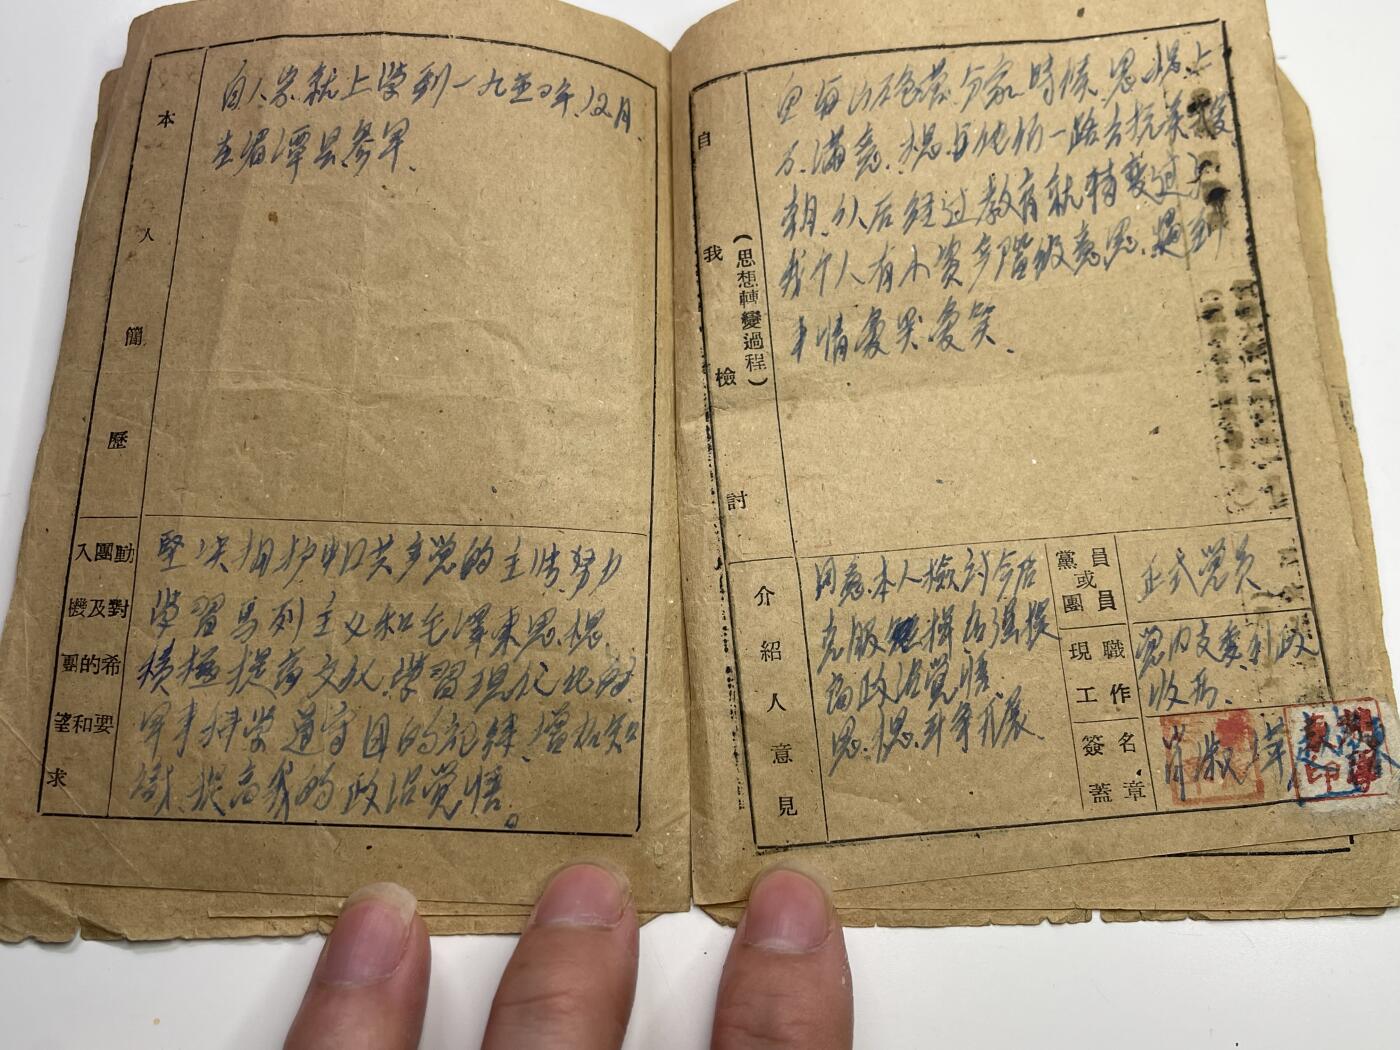 本人簡歷
自人家就上学到一九五〇年12月
在湄潭县参军.
入團動
機及對
團的希
望和要
求
堅决拥护中囗共产党的主张努力
学習馬列主义和毛澤東思想
積極提高文化学習现代化的
军事科学遵守团的纪律增加知
識提高我的政治觉悟。
自我檢討
(思想轉變過程)
分家時候思想上
不满意想与他们一路去抗美援
朝从后经过教育就轉變过
我个人有小资产階级意思遇到
事情爱哭爱笑.
介紹人意見
同意本人檢討今后
克服 提
高政治觉悟
思想斗争开展.
黨員
或
團員
正式党员
現職
工作
党内支委
簽名
蓋章